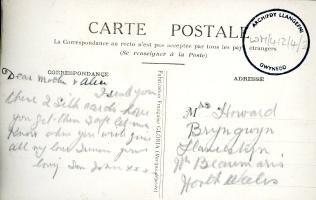 CARTE POSTALE
La Correspondance au recto n'est pas acceptée par tous les pays étrangers
(Se renseigner à la Poste)
CORRESPONDANCE
ADRESSE
ARCHIFDY LLANGEFNI
GWYNEDD
Dear Mother & Alice
I send you
these 2 silk cards hope
you get them safe let me
know when you
all my love
loving Son John xxx
Fabrication Française
Mrs Howard
Bryngwyn
Llanestyn
Nr Beaumaris
North Wales